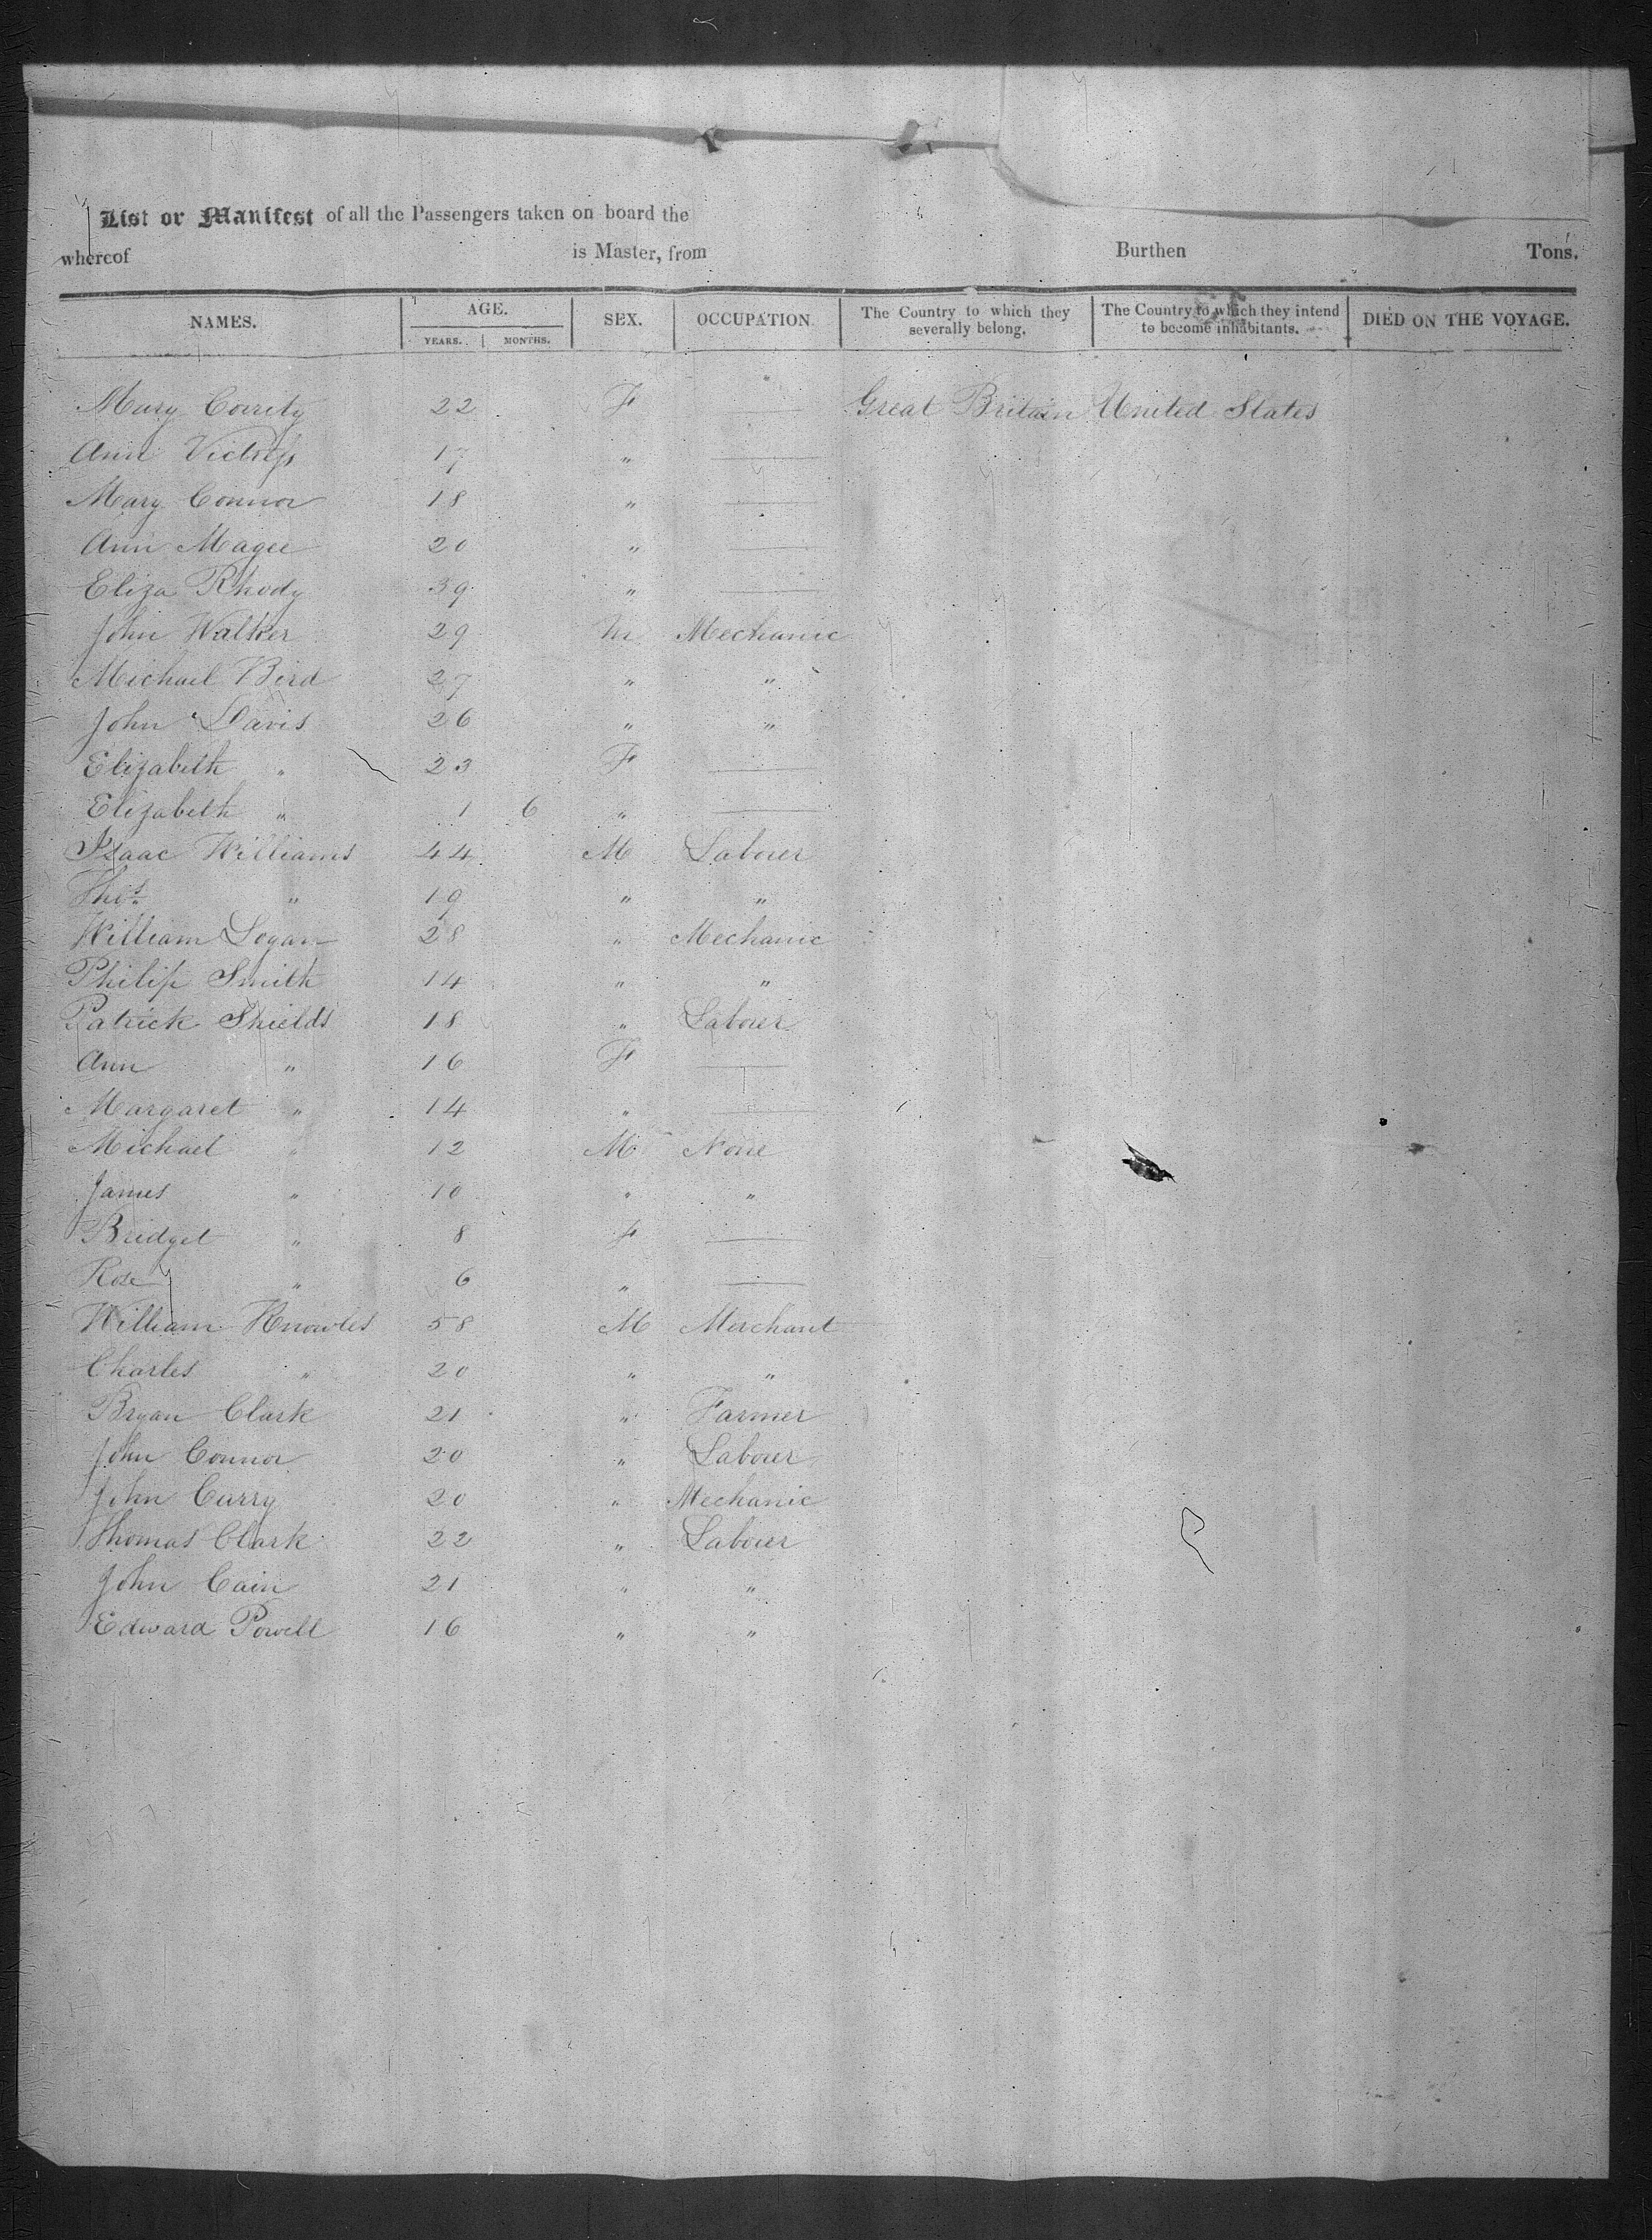 List or Manifest of all the Passengers taken on board the
whereof is Master, from Burthen Tons.
NAMES. AGE. YEARS. MONTHS. SEX. OCCUPATION. The Country to which they severally belong. The Country to which they intend to become inhabitants. DIED ON THE VOYAGE.
Mary 22 F — Great Britain United States
Ann 17 " —
Mary Connor 18 " —
Ann Magee 20 " —
Eliza Rhody 39 " —
John Walker 29 M Mechanic
Michael Bird 27 " "
John Davis 26 " "
Elizabeth " 23 F —
Elizabeth " 1 6 " —
Isaac Williams 44 M Labourer
Thos " 19 " "
William Logan 28 " Mechanic
Philip Smith 14 " "
Patrick Shields 18 " Labourer
Ann " 16 F —
Margaret " 14 " —
Michael " 12 M None
James " 10 " "
Bridget " 8 F —
Rose " 6 " —
William Knowles 58 M Merchant
Charles " 20 " "
Bryan Clark 21 " Farmer
John Connor 20 " Labourer
John Curry 20 " Mechanic
Thomas Clark 22 " Labourer
John Cain 21 " "
Edward Powell 16 " "